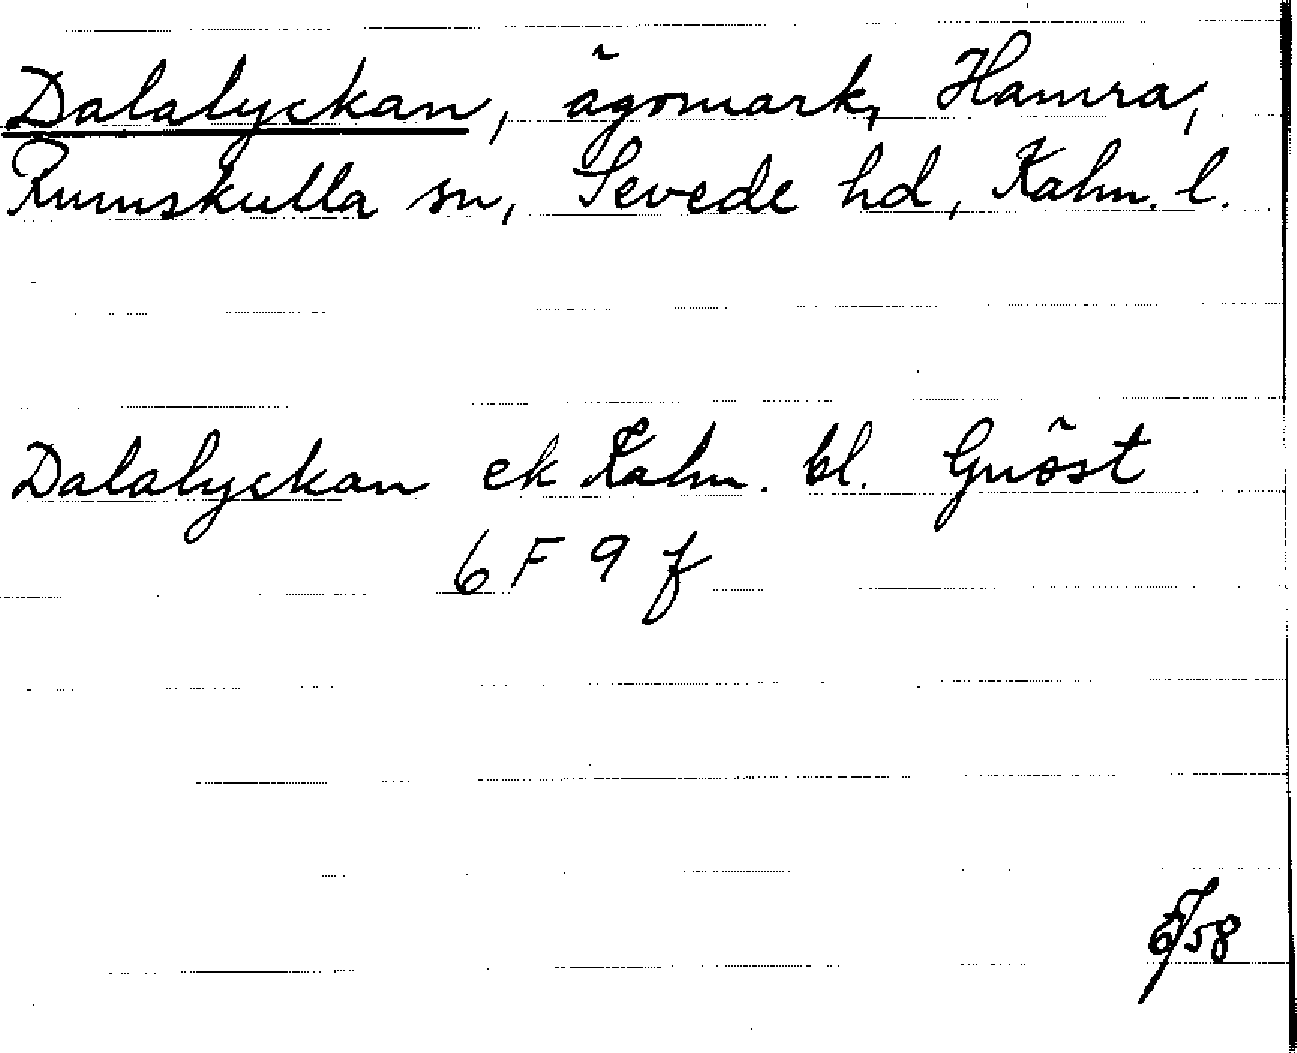 Dalalyckan, ägomark, Hamra,
Rumskulla sn, Sevede hd, Kalm. l.
Dalalyckan ek Kalm. bl. Gnöst
6 F 9 f